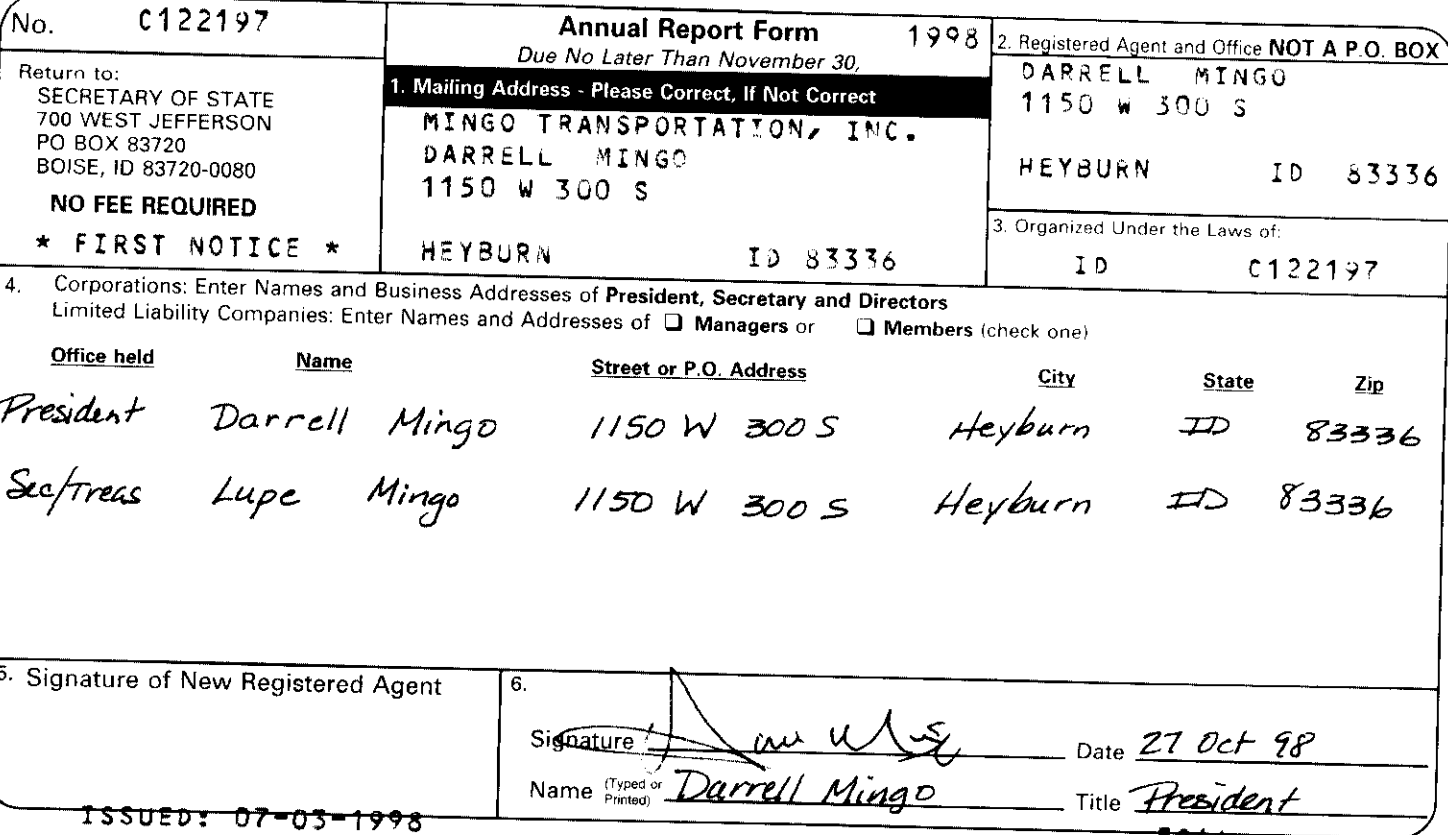 No. C122197
Return to:
SECRETARY OF STATE
700 WEST JEFFERSON
PO BOX 83720
BOISE, ID 83720-0080
NO FEE REQUIRED
* FIRST NOTICE *
Annual Report Form 1998
Due No Later Than November 30,
1. Mailing Address - Please Correct, If Not Correct
MINGO TRANSPORTATION, INC.
DARRELL MINGO
1150 W 300 S
HEYBURN ID 83336
2. Registered Agent and Office NOT A P.O. BOX
DARRELL MINGO
1150 W 300 S
HEYBURN ID 83336
3. Organized Under the Laws of:
ID C122197
4. Corporations: Enter Names and Business Addresses of President, Secretary and Directors
Limited Liability Companies: Enter Names and Addresses of ❑ Managers or ❑ Members (check one)
Office held Name Street or P.O. Address City State Zip
President Darrell Mingo 1150 W 300 S Heyburn ID 83336
Sec/Treas Lupe Mingo 1150 W 300 S Heyburn ID 83336
5. Signature of New Registered Agent
6.
Signature Date 27 Oct 98
Name (Typed or Printed) Darrell Mingo Title President
ISSUED: 07-03-1998